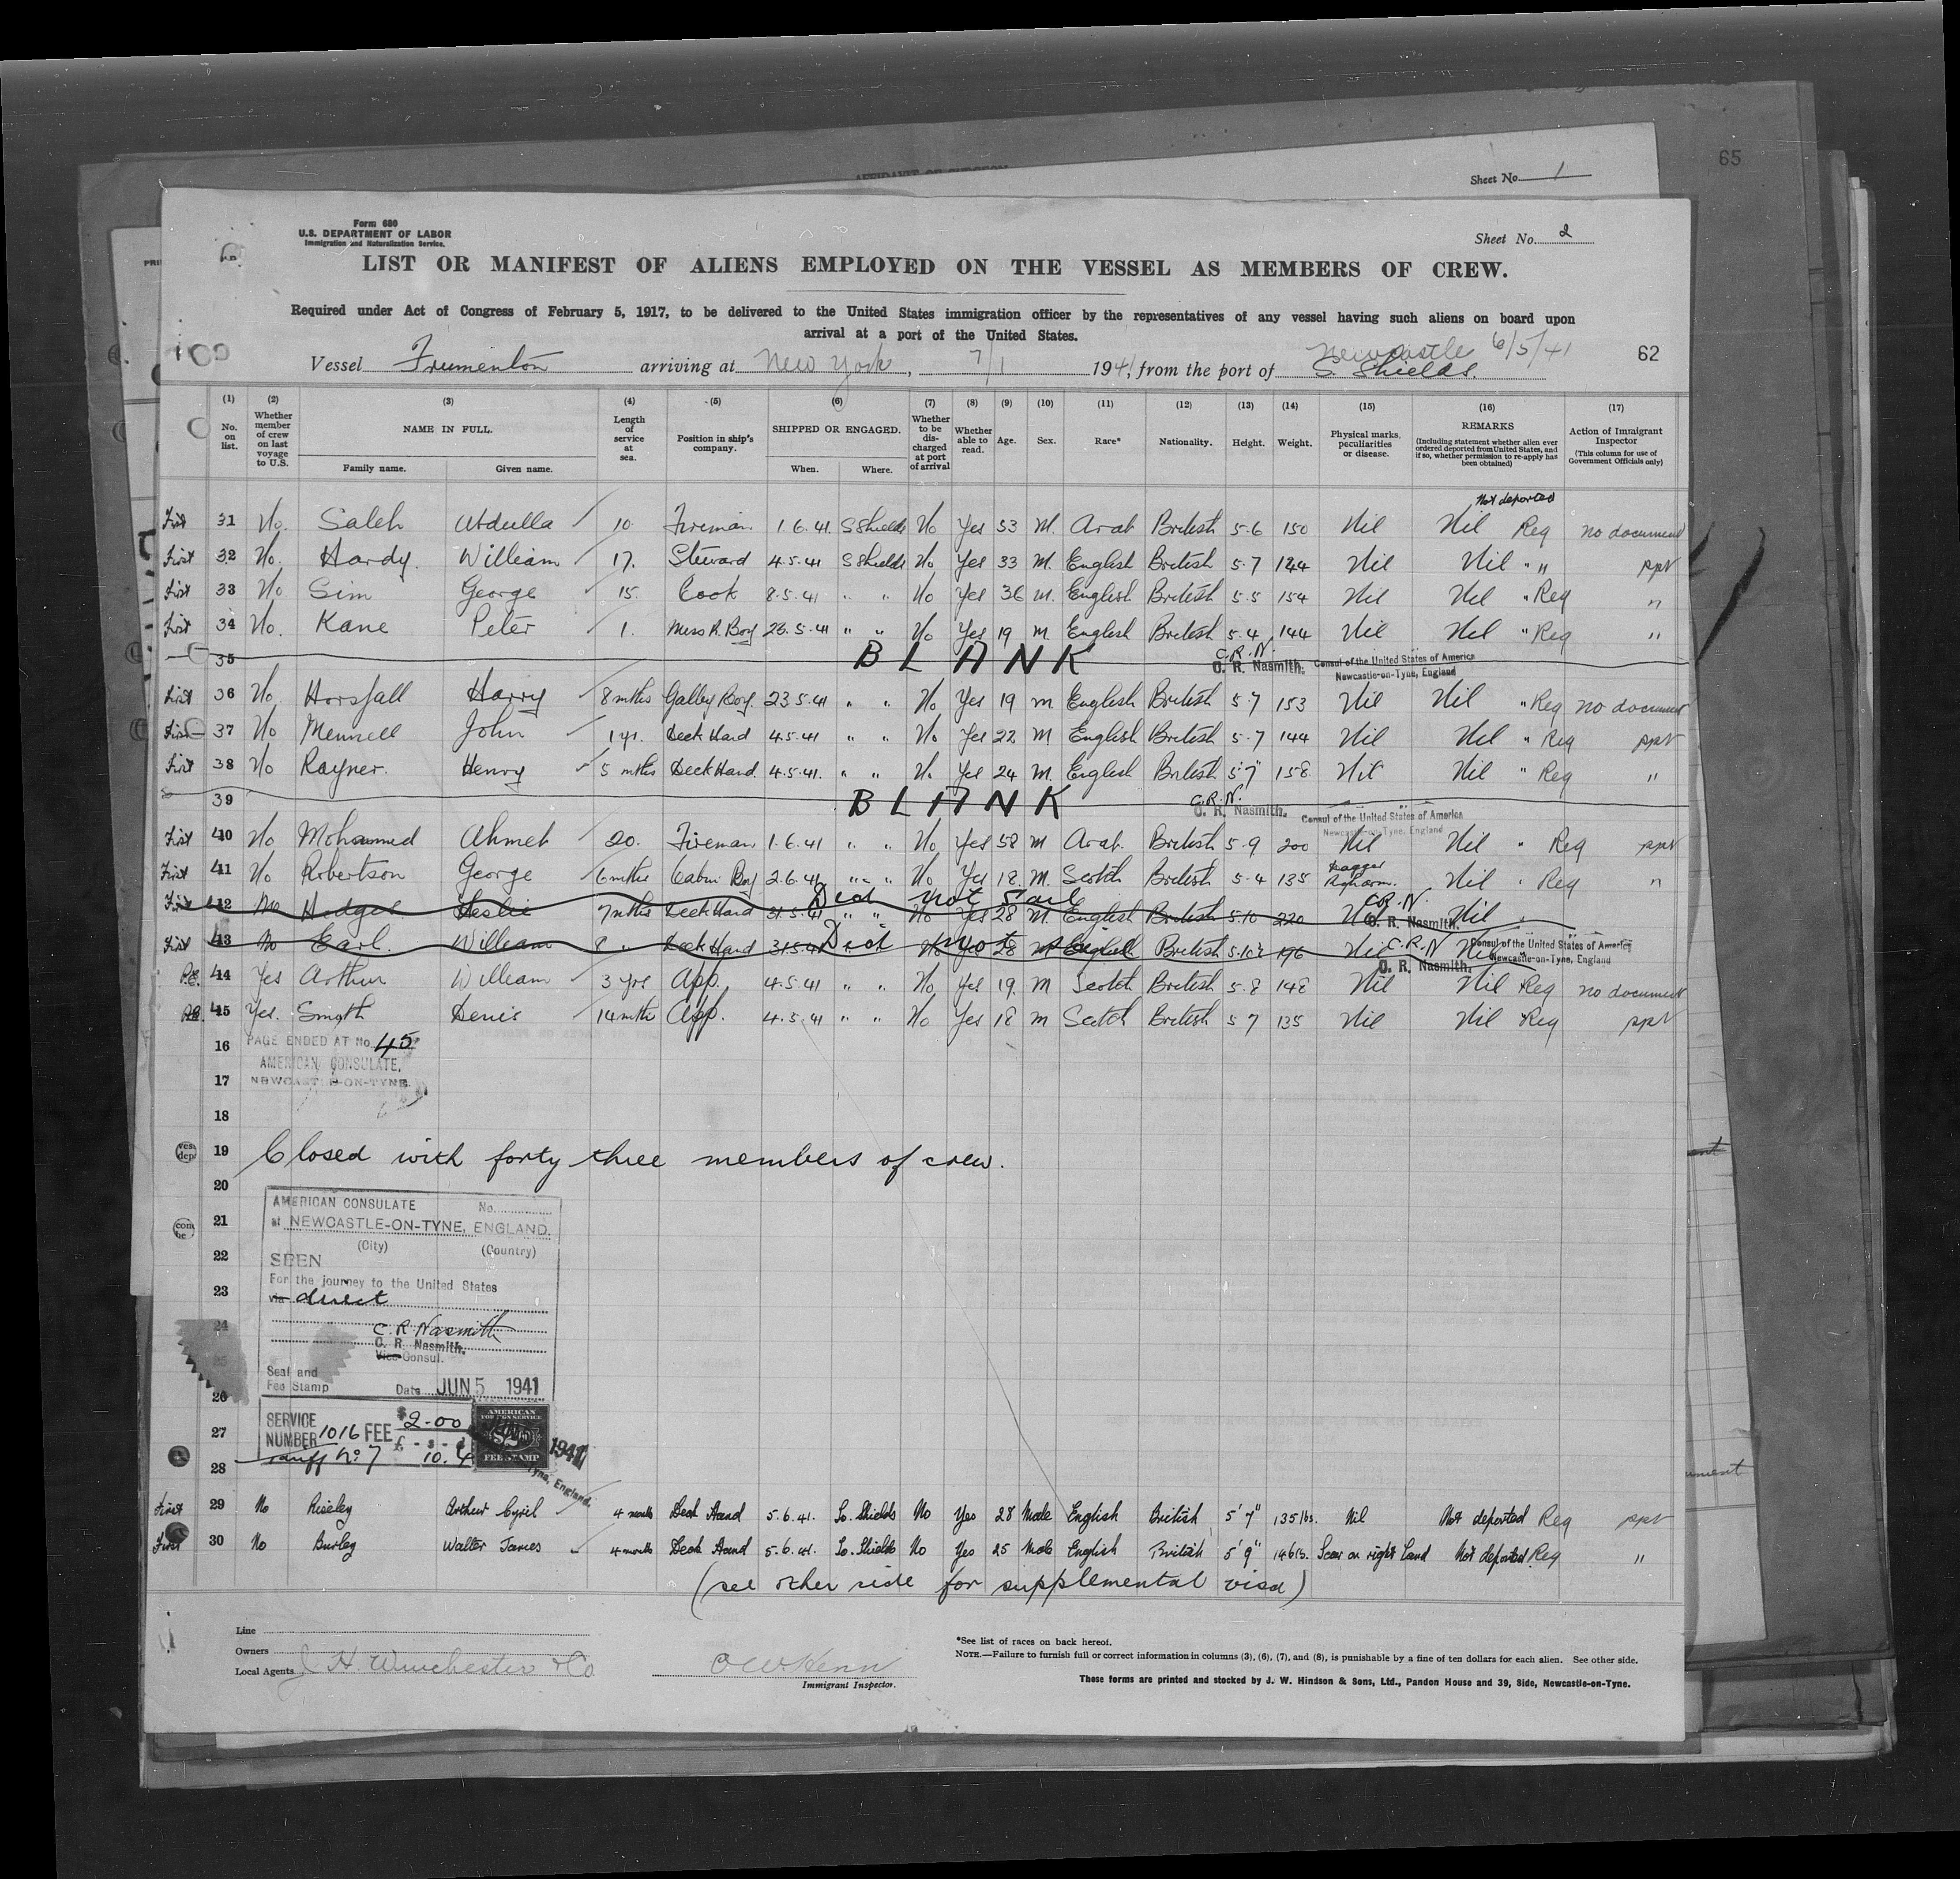 65
Sheet No. 1
Form 680
U.S. DEPARTMENT OF LABOR
Immigration and Naturalization Service.
Sheet No. 2
LIST OR MANIFEST OF ALIENS EMPLOYED ON THE VESSEL AS MEMBERS OF CREW.
Required under Act of Congress of February 5, 1917, to be delivered to the United States immigration officer by the representatives of any vessel having such aliens on board upon
arrival at a port of the United States.
Newcastle 6/5/41
62
Vessel Frumenton arriving at New York, 7/1 1941, from the port of S. Shields.
(1) (2) (3) (4) (5) (6) (7) (8) (9) (10) (11) (12) (13) (14) (15) (16) (17)
No. on list.
Whether member of crew on last voyage to U.S.
NAME IN FULL.
Family name. Given name.
Length of service at sea.
Position in ship's company.
SHIPPED OR ENGAGED.
When. Where.
Whether to be discharged at port of arrival
Whether able to read.
Age.
Sex.
Race*
Nationality.
Height.
Weight.
Physical marks, peculiarities or disease.
REMARKS
(Including statement whether alien ever ordered deported from United States, and if so, whether permission to re-apply has been obtained)
Action of Immigrant Inspector
(This column for use of Government Officials only)
Not deported
First 31 No. Saleh Abdulla 10 Fireman 1.6.41. S Shields No Yes 53 M. Arab British 5.6 150 Nil Nil Req no document
First 32 No. Hardy. William 17. Steward 4.5.41 S Shields No Yes 33 M. English British 5.7 124 Nil Nil " " ppt
First 33 No. Sim George 15. Cook 8.5.41 " " No Yes 36 M. English British 5.5 154 Nil Nil " Req "
First 34 No. Kane Peter 1. Mess R. Boy 23.5.41 " " No Yes 19 M English British 5.4 144 Nil Nil " Req "
35 BLANK C.R.N. C. R. Nasmith. Consul of the United States of America
Newcastle-on-Tyne, England
First 36 No. Horsfall Harry 8 mths Galley Boy. 23.5.41 " " No Yes 19 M English British 5.7 153 Nil Nil " Req no document
First 37 No Mennell John 1 yr. Deck Hand 4.5.41 " " No Yes 22 M English British 5.7 144 Nil Nil " Req ppt
First 38 No Rayner. Henry 5 mths Deck Hand. 4.5.41. " " No Yes 24 M. English British 5'7" 158 Nil Nil " Req "
39 BLANK C.R.N. C. R. Nasmith. Consul of the United States of America
Newcastle-on-Tyne, England
First 40 No Mohammed Ahmet 20. Fireman 1.6.41 " " No Yes 58 M Arab. British 5.9 200 Nil Nil " Req ppt
First 41 No Robertson George 6 mths Cabin Boy 2.6.41 " " No Yes 18. M. Scotch British 5.4 135 Dagger Nil " Req "
First 42 No Hodges Leslie 7 mths Deck Hand 31.5.41 " " No Yes 28 M. English British 5.10 220 Nil Nil
Did not Sail C.R.N. C. R. Nasmith.
First 43 No Earl. William 8 " Deck Hand 31.5.41 No Yes 28 M English British 196 Nil Nil
Did not C.R.N C. R. Nasmith. Consul of the United States of America
Newcastle-on-Tyne, England
44 Yes Arthur William 3 yrs App. 4.5.41 " " No Yes 19. M Scotch British 5.8 148 Nil Nil Req no document
45 Yes. Smyth Denis 14 mths App. 4.5.41 " " No Yes 18 M Scotch British 5 7 135 Nil Nil Req ppt
16 PAGE ENDED AT No. 45
AMERICAN CONSULATE,
17 NEWCASTLE-ON-TYNE.
18
19 Closed with forty three members of crew.
20
AMERICAN CONSULATE No.
21 at NEWCASTLE-ON-TYNE, ENGLAND.
(City) (Country)
22 SEEN
For the journey to the United States
23 via direct
24 C. R Nasmith
C. R. Nasmith.
Vice Consul.
25
Seal and
Fee Stamp Date JUN 5 1941
26
SERVICE NUMBER 1016 FEE $2-00
27 £ - s - d
Tariff No. 7 10.4
AMERICAN FOREIGN SERVICE $2 FEE STAMP
1941
Tyne, England.
28
First 29 No Riseley Arthur Cyril 4 months Deck Hand 5.6.41. So. Shields No Yes 28 Male English British 5'7" 135 lbs. Nil Not deported Req ppt
First 30 No Burley Walter James 4 months Deck Hand 5.6.41. So. Shields No Yes 25 Male English British 5'9" 146 lb. Scar on right hand Not deported Req "
(see other side for supplemental visa)
Line
Owners
Local Agents J H Winchester & Co
Immigrant Inspector.
*See list of races on back hereof.
NOTE.—Failure to furnish full or correct information in columns (3), (6), (7), and (8), is punishable by a fine of ten dollars for each alien. See other side.
These forms are printed and stocked by J. W. Hindson & Sons, Ltd., Pandon House and 39, Side, Newcastle-on-Tyne.